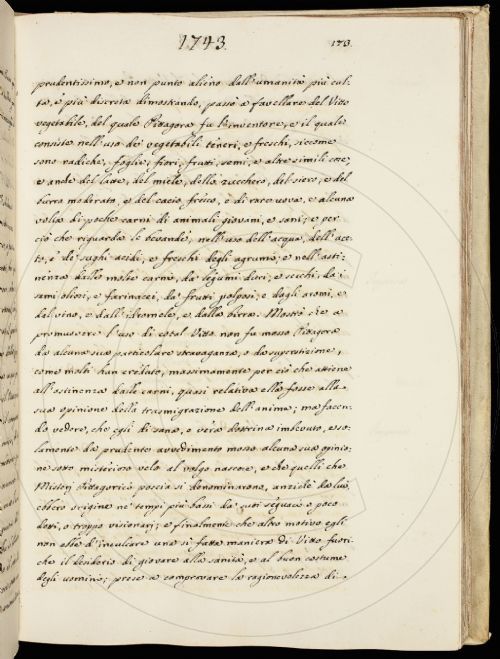 1743.
173.
prudentissimo, e non punto alieno dall'umanità più cul-
ta, e più discreta dimostrando, passò a favellare del Vitto
vegetabile, del quale Pittagora fu l'inventore, e il quale
consiste nell'uso de' vegetabili teneri, e freschi, siccome
sono radiche, foglie, fiori, frutti, semi, e altre simili cose,
e anche del latte, del miele, dello zucchero, del siero, e del
burro moderato, e del cacio fresco, e di rare uova, e alcuna
volta di poche carni di animali giovani, e sani; e per
ciò che riguarda le bevande, nell'uso dell'acqua, dell'ace-
to, e de' sughi acidi, e freschi degli agrumi, e nell'asti-
nenza dalle molte carni, da' legumi duri, e secchi, da i
semi oliosi, e farinacei, da' frutti polposi, e dagli aromi, e
dal vino, e dall'idromele, e dalla birra. Mostrò che a
promuovere l'uso di cotal Vitto non fu mosso Pittagora
da alcuna sua particolare stravaganza, o da superstizione,
come molti han creduto, massimamente per ciò che attiene
all'astinenza dalle carni, quasi relativa ella fosse alla
sua opinione della trasmigrazione dell'anima; ma facen-
do vedere, che egli di sana, e vera dottrina imbevuto, e so-
lamente da prudente avvedimento mosso alcuna sua opinio-
ne sotto misterioso velo al volgo nascose, e che quelli che
Misterj Pittagorici poscia si denominarono, anzichè da lui,
ebbero origine ne' tempi più bassi da suoi seguaci o poco
dotti, o troppo visionarj; e finalmente che altro motivo egli
non ebbe d'inculcare una sì fatta maniera di Vitto fuori-
chè il desiderio di giovare alla sanità, e al buon costume
degli uomini; prese a comprovare la ragionevolezza di